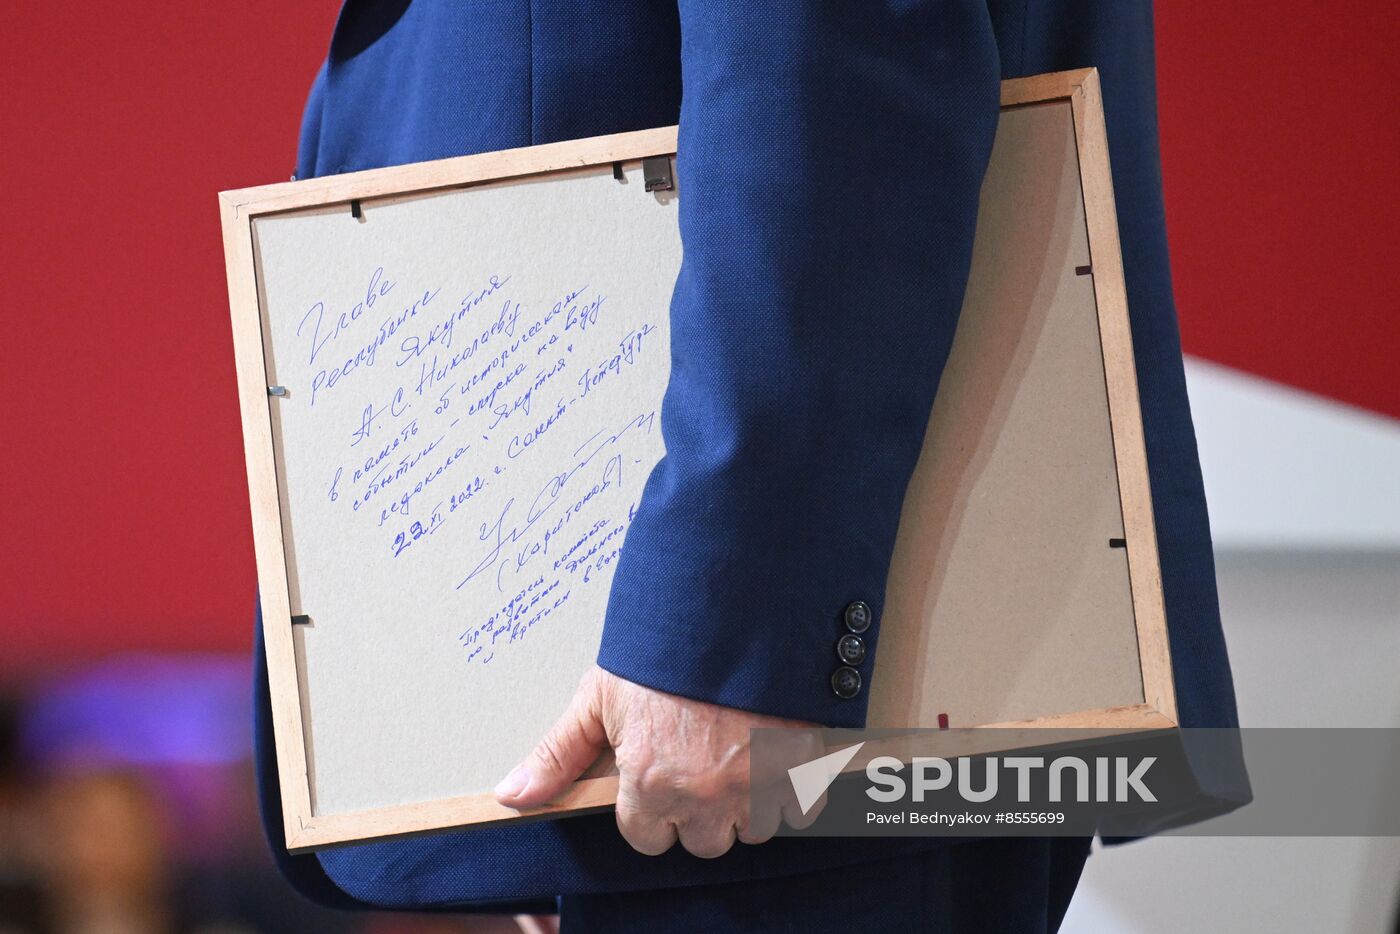 Главе
республике
Якутия
А. С. Николаеву
в память об историческом
событии - спуска на воду
ледокола "Якутия"
22.XI 2022 г. Санкт-Петербург.
(Харитонов)
Председатель комитета
по развитию Дальнего В
и Арктики в
SPUTNIK
Pavel Bednyakov #8555699